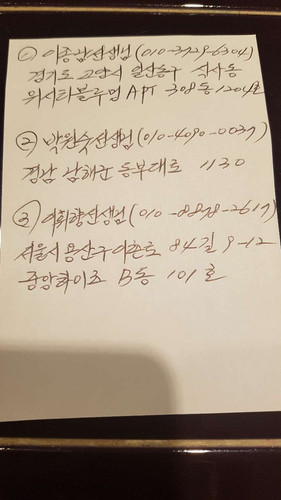 ① 이종남선생님 (010-3729-6304)
경기도 고양시 일산동구 식사동
위시티블루밍 APT 308동 1204호
② 박원숙선생님 (010-4090-0037)
경남 남해군 동부대로 1130
③ 이휘향선생님 (010-8898-2617)
서울시 용산구 이촌로 84길 9-12
중앙하이츠 B동 101호